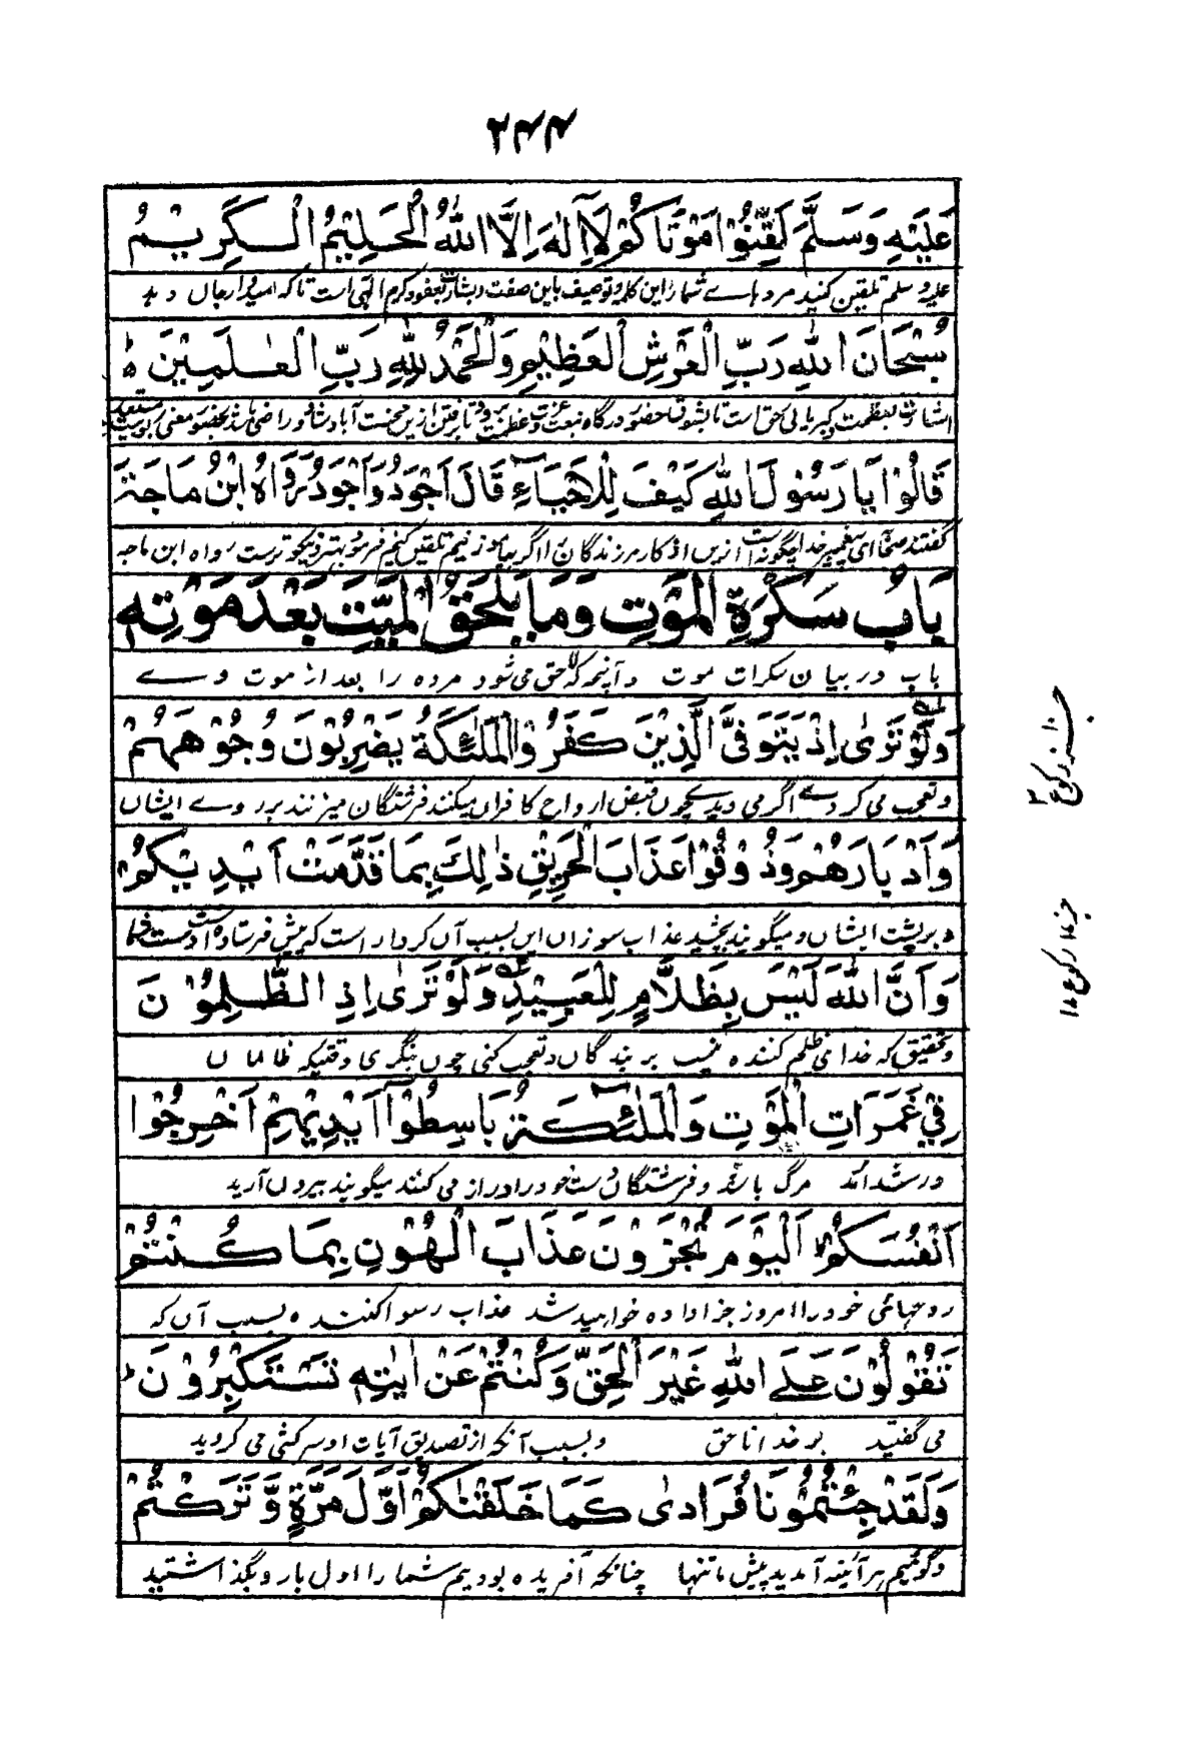 ۲۴۴
عَلَيْهِ وَسَلَّمَ لَقِّنُوْا مَوْتَاكُمْ لَآ اِلٰهَ اِلَّا اللّٰهُ الْحَلِيْمُ الْكَرِيْمُ
عليه وسلم تلقین کنید مردہاے شما را این کلمه و توصیف باین صفت و بکرم الٰہی است تاکہ امیدوار جاں دہد
سُبْحَانَ اللّٰهِ رَبِّ الْعَرْشِ الْعَظِيْمِ وَالْحَمْدُ لِلّٰهِ رَبِّ الْعٰلَمِيْنَ ط
اشارت بعظمت و کبریائی حق است تا بشوق حضور درگاه
قَالُوْا يَا رَسُوْلَ اللّٰهِ كَيْفَ لِلْاَحْيَاءِ قَالَ اَجْوَدُ وَاَجْوَدُ رَوَاهُ ابْنُ مَاجَةَ
گفتند صحابه ای پیغمبر خدا چگونه است این اذکار مر زندگان را اگر بیاموزنیم تلقین کنیم فرمود بهتر و نیکوتر ست رواه ابن ماجه
بَابُ سَكْرَةِ الْمَوْتِ وَمَا يَلْحَقُ الْمَيِّتَ بَعْدَ مَوْتِهِ
باب در بیان سکرات موت و آنچه کہ لاحق می شود مرده را بعد از موت وے
وَلَوْ تَرٰى اِذْ يَتَوَفَّى الَّذِيْنَ كَفَرُوا الْمَلٰٓئِكَةُ يَضْرِبُوْنَ وُجُوْهَهُمْ
و تعجب می کردے اگر می دیدے چوں قبض ارواح کافراں میکنند فرشتگان میزنند بر روے ایشاں
وَاَدْبَارَهُمْ وَذُوْقُوْا عَذَابَ الْحَرِيْقِ ذٰلِكَ بِمَا قَدَّمَتْ اَيْدِيْكُمْ
و بر پشت ایشاں و میگویند بچشید عذاب سوزاں این بسبب آں کردار است کہ پیش فرستاده است دست شما
وَاَنَّ اللّٰهَ لَيْسَ بِظَلَّامٍ لِلْعَبِيْدِ وَلَوْ تَرٰى اِذِ الظّٰلِمُوْنَ
و تحقیق کہ خدا ظلم کننده نیست بر بندگاں و تعجب کنی چوں بنگری وقتیکہ ظالماں
فِيْ غَمَرَاتِ الْمَوْتِ وَالْمَلٰٓئِكَةُ بَاسِطُوْٓا اَيْدِيْهِمْ اَخْرِجُوْا
در شدائد مرگ باشند و فرشتگان دست خود را دراز می کنند میگویند بیروں آرید
اَنْفُسَكُمْ اَلْيَوْمَ تُجْزَوْنَ عَذَابَ الْهُوْنِ بِمَا كُنْتُمْ
روحهائی خود را امروز جزا داده خواہید شد عذاب رسوا کننده بسبب آں کہ
تَقُوْلُوْنَ عَلَى اللّٰهِ غَيْرَ الْحَقِّ وَكُنْتُمْ عَنْ اٰيٰتِهِ تَسْتَكْبِرُوْنَ ط
می گفتید بر خدا ناحق و بسبب آنکہ از تصدیق آیات او سرکشی می کردید
وَلَقَدْ جِئْتُمُوْنَا فُرَادٰى كَمَا خَلَقْنٰكُمْ اَوَّلَ مَرَّةٍ وَّتَرَكْتُمْ
و گوئیم ہر آئینہ آمدید پیش ما تنہا چنانکہ آفریده بودیم شما را اول بار و بگذاشتید